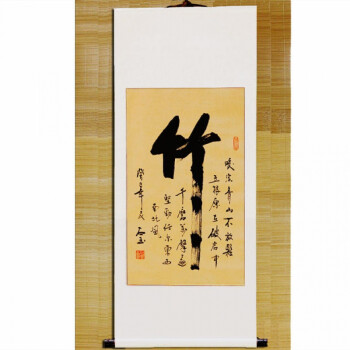 竹
咬定青山不放鬆
立根原在破岩中
千磨萬擊還
堅勁任爾東西
南北風